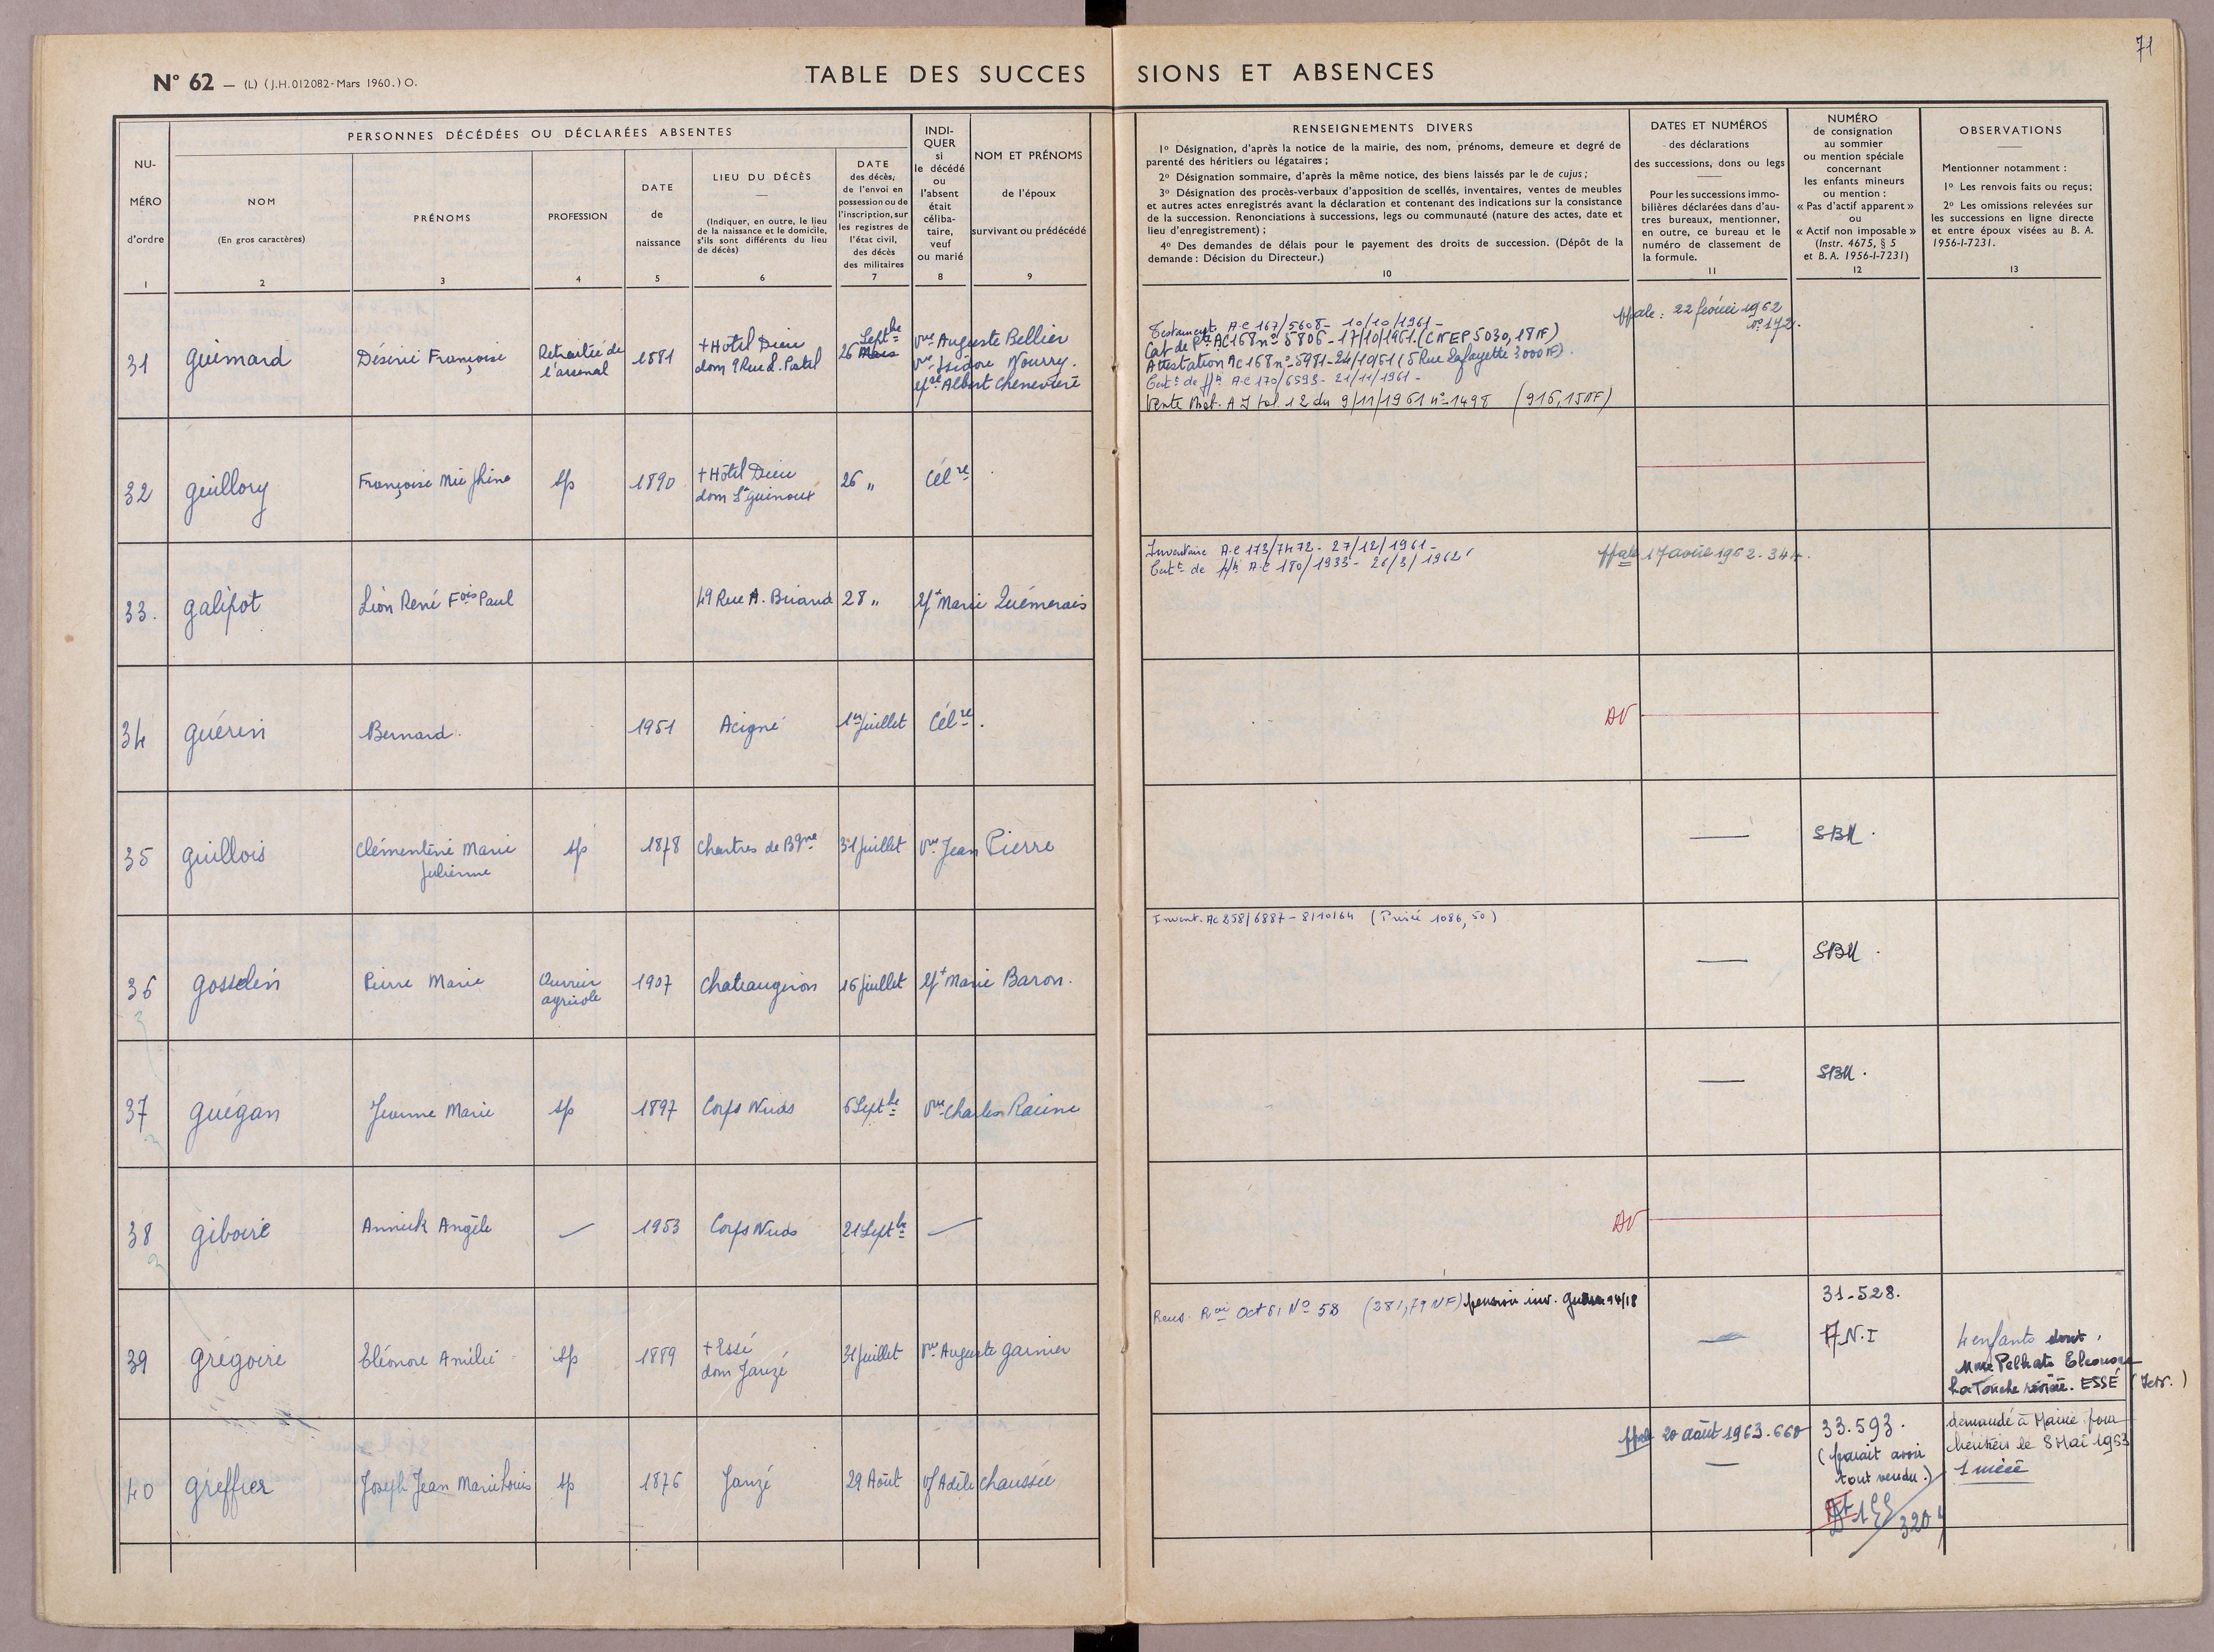 71
N° 62 — (L) (J.H. 012082-Mars 1960.) O.
TABLE DES SUCCES SIONS ET ABSENCES
NU-
MÉRO
d'ordre
1
PERSONNES DÉCÉDÉES OU DÉCLARÉES ABSENTES
NOM
(En gros caractères)
2
PRÉNOMS
3
PROFESSION
4
DATE
de
naissance
5
LIEU DU DÉCÈS
(Indiquer, en outre, le lieu
de la naissance et le domicile,
s'ils sont différents du lieu
de décès)
6
DATE
des décès,
de l'envoi en
possession ou de
l'inscription, sur
les registres de
l'état civil,
des décès
des militaires
7
INDI-
QUER
si
le décédé
ou
l'absent
était
céliba-
taire,
veuf
ou marié
8
NOM ET PRÉNOMS
de l'époux
survivant ou prédécédé
9
RENSEIGNEMENTS DIVERS
1° Désignation, d'après la notice de la mairie, des nom, prénoms, demeure et degré de
parenté des héritiers ou légataires ;
2° Désignation sommaire, d'après la même notice, des biens laissés par le de cujus ;
3° Désignation des procès-verbaux d'apposition de scellés, inventaires, ventes de meubles
et autres actes enregistrés avant la déclaration et contenant des indications sur la consistance
de la succession. Renonciations à successions, legs ou communauté (nature des actes, date et
lieu d'enregistrement) ;
4° Des demandes de délais pour le payement des droits de succession. (Dépôt de la
demande : Décision du Directeur.)
10
DATES ET NUMÉROS
des déclarations
des successions, dons ou legs
Pour les successions immo-
bilières déclarées dans d'au-
tres bureaux, mentionner,
en outre, ce bureau et le
numéro de classement de
la formule.
11
NUMÉRO
de consignation
au sommier
ou mention spéciale
concernant
les enfants mineurs
ou mention :
« Pas d'actif apparent »
ou
« Actif non imposable »
(Instr. 4675, § 5
et B. A. 1956-I-7231)
12
OBSERVATIONS
Mentionner notamment :
1° Les renvois faits ou reçus ;
2° Les omissions relevées sur
les successions en ligne directe
et entre époux visées au B. A.
1956-I-7231.
13
31
Guimard
Désirée Françoise
Retraitée de
l'arsenal
1881
+ Hôtel Dieu
dom 9 Rue L. Pastel
26 Mars Septbre
Vve Auguste Bellier
Vve Isidore Nourry.
Albert Chenevière
Testament A.C 167/5608 - 10/10/1961 -
Cat de Pté AC 168 n° 5806 - 17/10/1961. (CNEP 5030,18 NF)
Attestation AC 168 n° 5981 - 24/10/61 (5 Rue Lafayette 3000 NF).
Cert de ppté A.C 170/6593 - 21/11/1961 -
Vente Mob. A J vol. 12 du 9/11/1961 n° 1498 (916,15 NF)
ppale : 22 février 1962
n° 172.
32
Guillory
Françoise Mie Jhine
sp
1890
+ Hôtel Dieu
dom St Guinoux
26 "
Célre
33.
Galipot
Léon René Fois Paul
49 Rue A. Briand
28 "
Ef+ Marie Quémerais
Inventaire A.C 173/7472 - 27/12/1961 -
Cert de ppté A.C 180/1933 - 26/3/1962
ppale 17 avril 1962 - 344.
34
Guérin
Bernard.
1951
Acigné
1er Juillet
Célre.
AV
35
Guillois
Clémentine Marie
Julienne
sp
1878
Chartres de Bgne
31 Juillet
Vve Jean Pierre
—
SBM.
36
Gosselin
Pierre Marie
Ouvrier
agricole
1907
Chateaugiron
16 Juillet
Ef+ Marie Baron.
Invent. AC 258/6887 - 8/10/64 (Prisée 1086,50)
—
SBM.
37
Guégan
Jeanne Marie
sp
1897
Corps Nuds
6 Septbre
Vve Charles Racine
—
SBM.
38
Giboire
Annick Angèle
—
1953
Corps Nuds
21 Septbre
—
AV
39
Grégoire
Eléonore Amélie
sp
1889
+ Essé
dom Janzé
31 Juillet
Vve Auguste Garnier
Rens. Oct 61 N° 58 (281,79 NF) pension inv. Guerre 14/18
—
31-528.
A.N.I
4 enfants dont
Mme Pelhate Eleonore
La Touche ESSÉ
40
Greffier
Joseph Jean Marie Louis
sp
1876
Janzé
29 Août
Vf Adèle Chaussée
ppale 20 août 1963. 660
—
33.593.
(parait avoir
tout vendu.)
3204
demandé à Mairie pour
héritiers le 8 Mai 1963
1 nièce